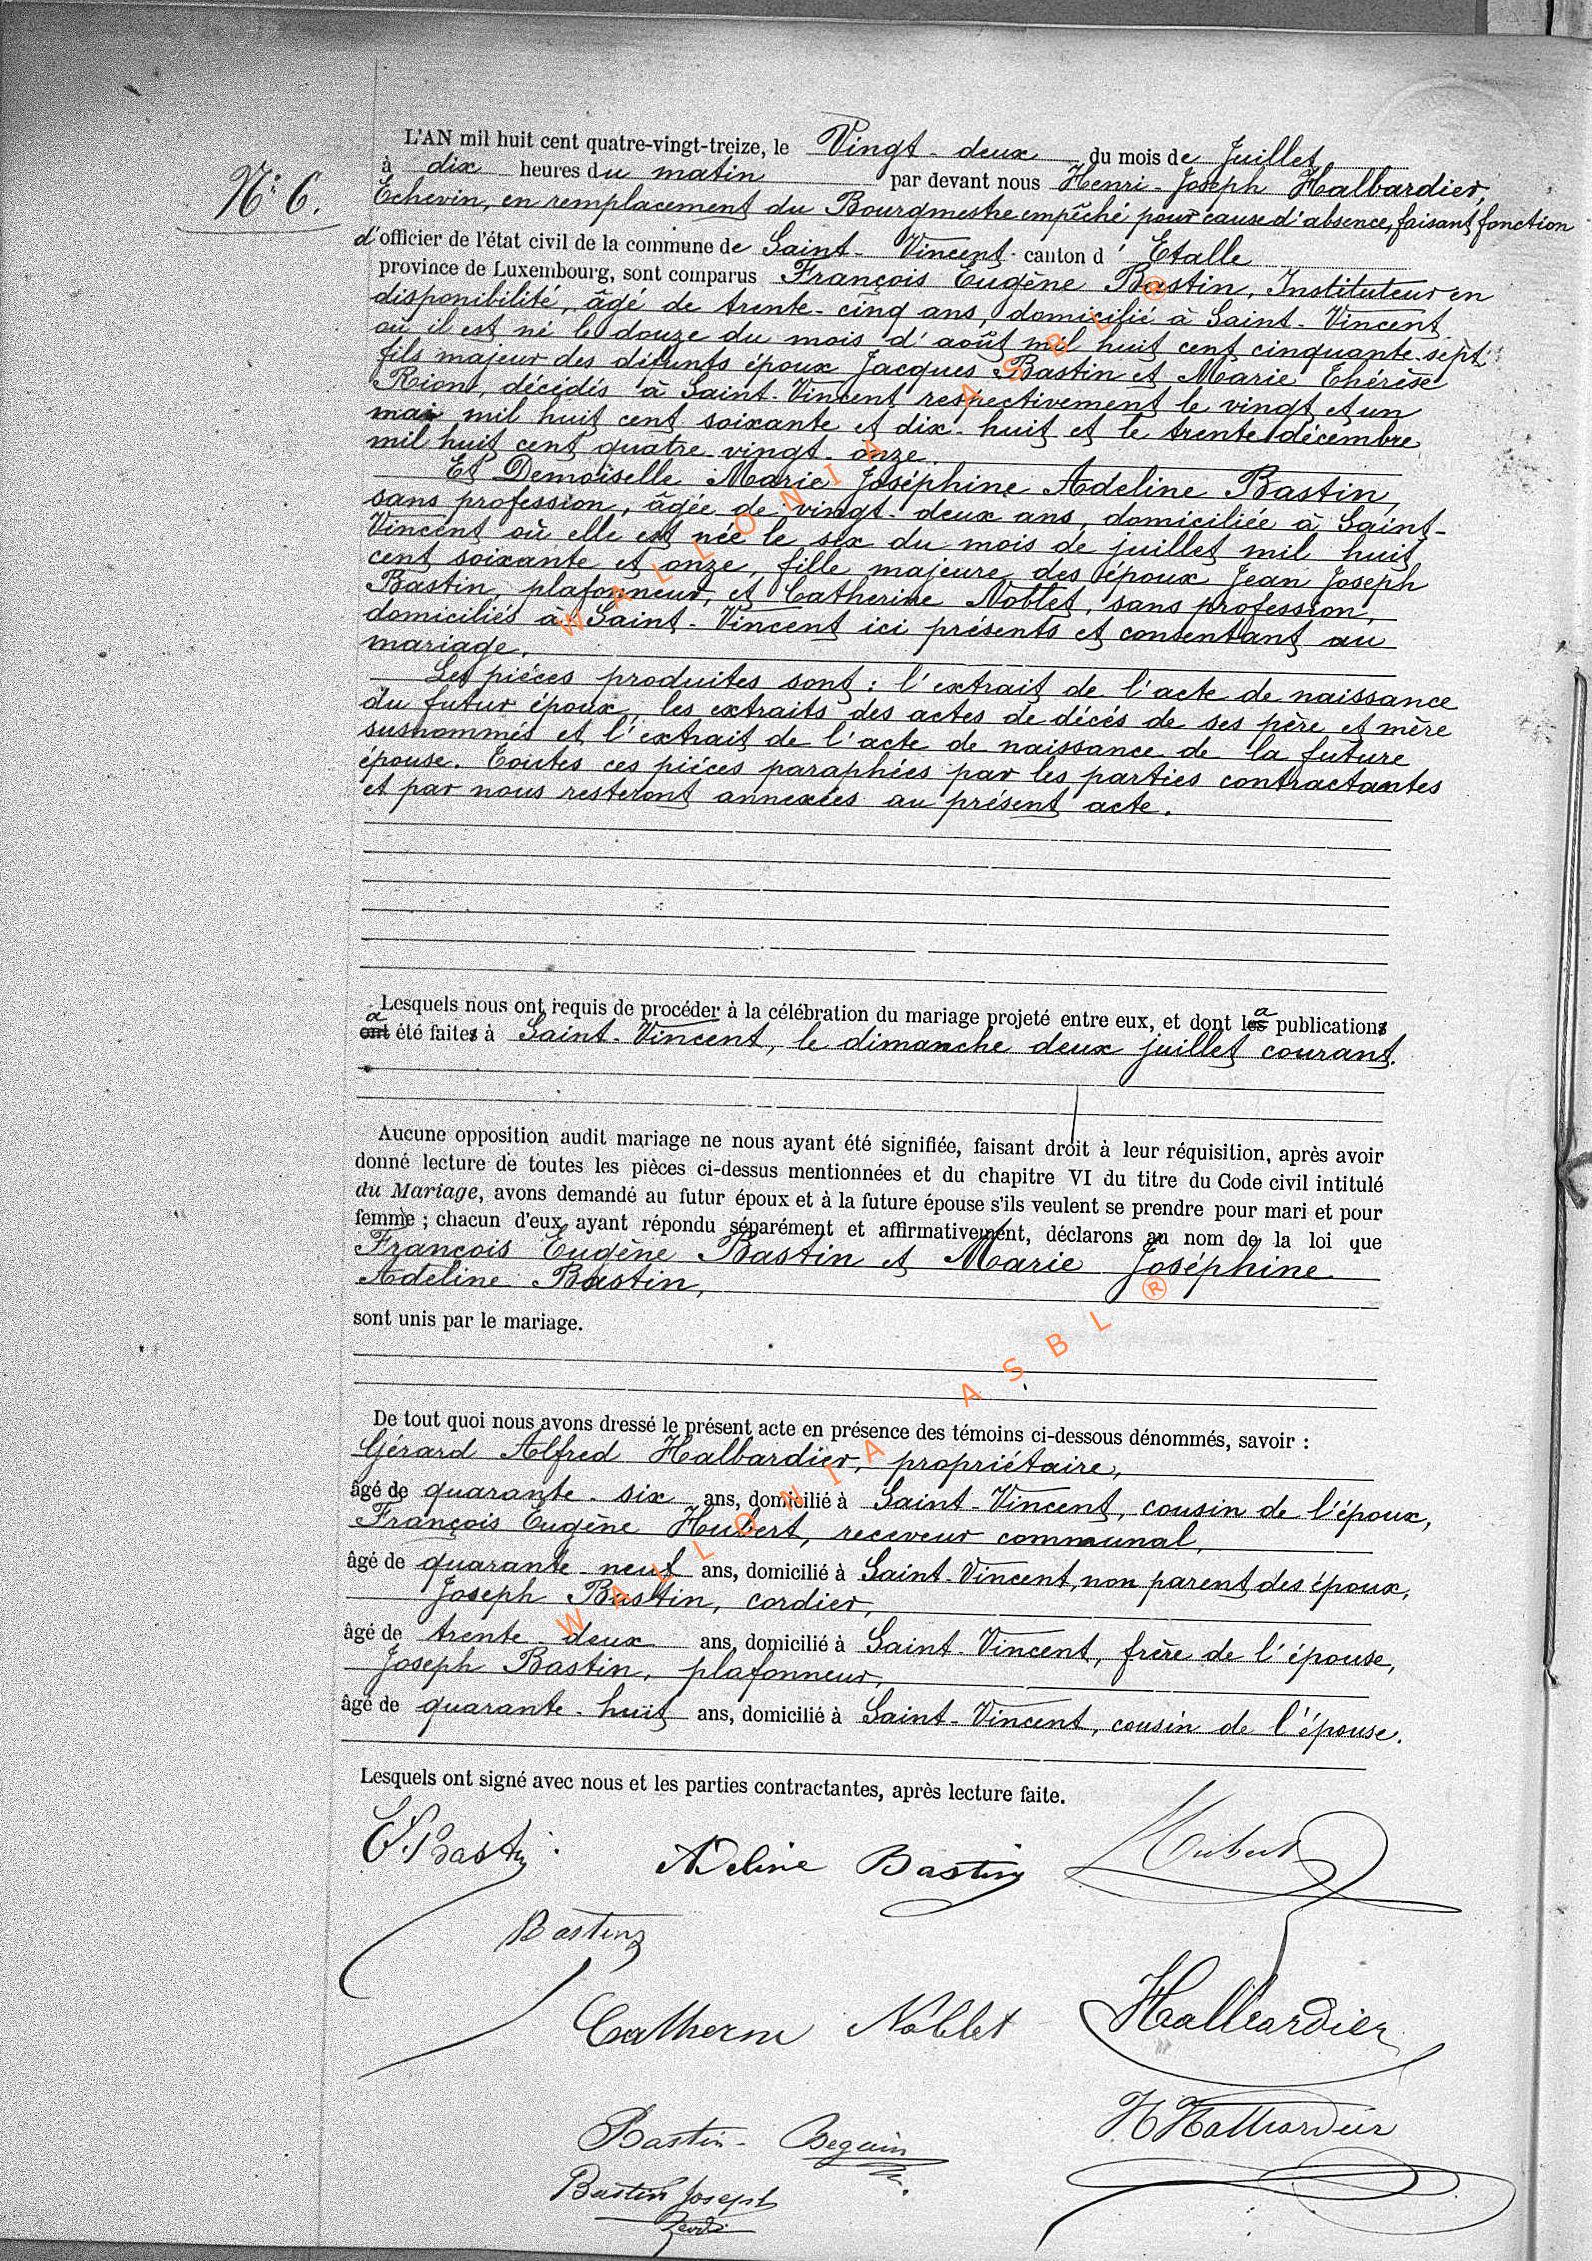 N° 6.
L'AN mil huit cent quatre-vingt-treize, le Vingt-deux du mois de Juillet
à dix heures du matin par devant nous Henri-Joseph Halbardier,
Echevin, en remplacement du Bourgmestre empêché pour cause d'absence, faisant fonction
d'officier de l'état civil de la commune de Saint-Vincent canton d'Etalle
province de Luxembourg, sont comparus François Eugène Bastin, Instituteur en
disponibilité, âgé de trente-cinq ans, domicilié à Saint-Vincent
où il est né le douze du mois d'août mil huit cent cinquante-sept
fils majeur des défunts époux Jacques Bastin et Marie Thérèse
Rion, décédés à Saint-Vincent respectivement le vingt et un
mai mil huit cent soixante et dix-huit et le trente décembre
mil huit cent quatre-vingt-onze.
Et Demoiselle Marie Joséphine Adeline Bastin,
sans profession, âgée de vingt-deux ans, domiciliée à Saint-
Vincent où elle est née le six du mois de juillet mil huit
cent soixante et onze, fille majeure des époux Jean Joseph
Bastin, plafonneur, et Catherine Noblet, sans profession,
domiciliés à Saint-Vincent ici présents et consentant au
mariage.
Les pièces produites sont : l'extrait de l'acte de naissance
du futur époux, les extraits des actes de décés de ses père et mère
susnommés et l'extrait de l'acte de naissance de la future
épouse. Toutes ces pièces paraphées par les parties contractantes
et par nous resteront annexées au présent acte.
Lesquels nous ont requis de procéder à la célébration du mariage projeté entre eux, et dont la publication
a été faite à Saint-Vincent, le dimanche deux juillet courant.
Aucune opposition audit mariage ne nous ayant été signifiée, faisant droit à leur réquisition, après avoir
donné lecture de toutes les pièces ci-dessus mentionnées et du chapitre VI du titre du Code civil intitulé
du Mariage, avons demandé au futur époux et à la future épouse s'ils veulent se prendre pour mari et pour
femme ; chacun d'eux ayant répondu séparément et affirmativement, déclarons au nom de la loi que
François Eugène Bastin et Marie Joséphine
Adeline Bastin,
sont unis par le mariage.
De tout quoi nous avons dressé le présent acte en présence des témoins ci-dessous dénommés, savoir :
Gérard Alfred Halbardier, propriétaire,
âgé de quarante-six ans, domicilié à Saint-Vincent, cousin de l'époux,
François Eugène Hubert, receveur communal,
âgé de quarante-neuf ans, domicilié à Saint-Vincent, non parent des époux,
Joseph Bastin, cordier,
âgé de trente deux ans, domicilié à Saint-Vincent, frère de l'épouse,
Joseph Bastin, plafonneur,
âgé de quarante-huit ans, domicilié à Saint-Vincent, cousin de l'épouse.
Lesquels ont signé avec nous et les parties contractantes, après lecture faite.
E. Bastin
Adeline Bastin
Hubert
Bastin
Catherine Noblet
Halbardier
Bastin-Beguin
H Halbardier
Bastin Joseph
WALLONIA ASBL ®
WALLONIA ASBL ®